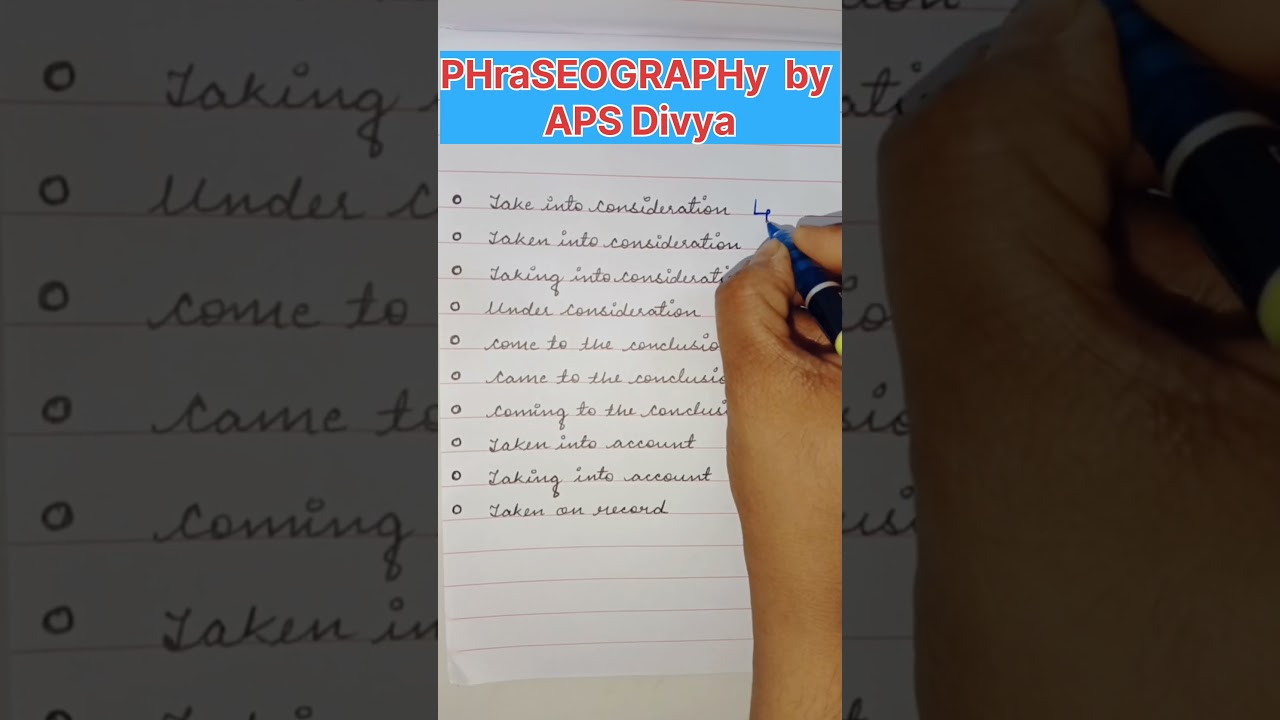 PHraSEOGRAPHy by
APS Divya
Take into consideration
Taken into consideration
Taking into considerati
Under consideration
come to the conclusio
came to the conclusio
coming to the conclusi
Taken into account
Taking into account
Taken on record